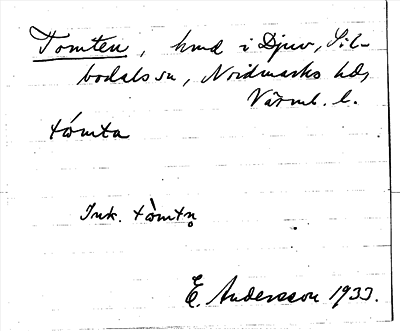 Tomten, hmd i Djuv, Sil-
bodals sn, Nordmarks hd,
Värml. l.
tómta
Ink. tòmtn̥
E. Andersson 1933.